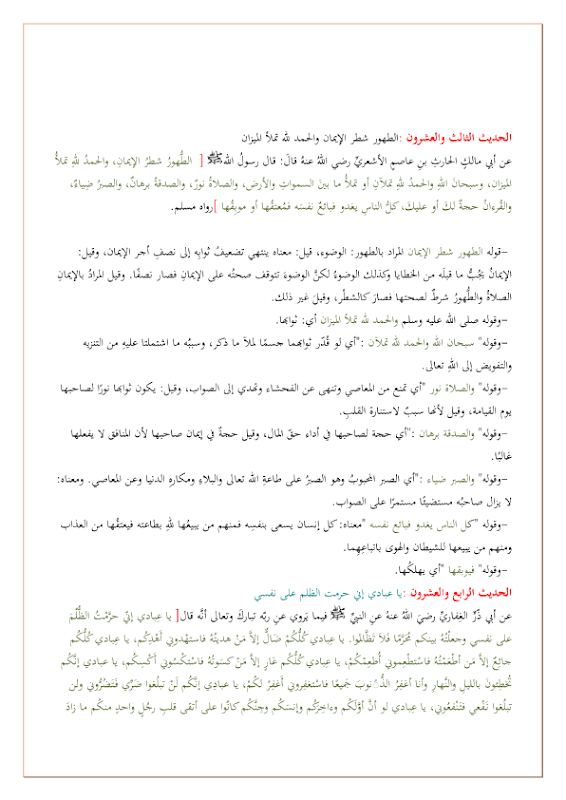 الحديث الثالث والعشرون :الطهور شطر الإيمان والحمد لله تملأ الميزان
عن أبي مالكٍ الحارثِ بنِ عاصمٍ الأشعريِّ رضي اللهُ عنهُ قالَ: قال رسولُ اللهِ ﷺ [ الطُّهورُ شطرُ الإيمانِ، والحمدُ للهِ تملأُ
الميزان، وسبحانَ اللهِ والحمدُ للهِ تملآنِ أو تملأُ ما بينَ السمواتِ والأرضِ، والصلاةُ نورٌ، والصدقةُ برهانٌ، والصبرُ ضِياءٌ،
والقُرءانُ حجةٌ لكَ أو عليكَ، كلُّ الناسِ يغدو فبائعٌ نفسَه فمُعتقُها أو موبقُها ]رواه مسلم.
–قوله الطهور شطر الإيمان المراد بالطهور: الوضوء، قيل: معناه ينتهي تضعيفُ ثوابِه إلى نصفِ أجر الإيمان، وقيل:
الإيمانُ يَجُبُّ ما قبلَه من الخطايا وكذلك الوضوءُ لكنَّ الوضوءَ تتوقف صحتُه على الإيمانِ فصار نصفًا. وقيل المرادُ بالإيمانِ
الصلاةُ والطُّهورُ شرطٌ لصحتها فصارَ كالشطْر، وقيل غير ذلك.
–وقوله صلى الله عليه وسلم والحمد لله تملأ الميزان أي: ثوابها.
–وقوله" سبحان الله والحمد لله تملآن :"أي لو قُدّر ثوابُهما جسمًا لملآ ما ذكر، وسببُه ما اشتملتا عليهِ من التنزيه
والتفويض إلى اللهِ تعالى.
–وقوله" والصلاة نور "أي تمنع من المعاصي وتنهى عن الفحشاء وتهدي إلى الصواب، وقيل: يكون ثوابُها نورًا لصاحبها
يوم القيامة، وقيل لأنها سببٌ لاستنارة القلبِ.
–وقوله" والصدقة برهان :"أي حجة لصاحبها في أداء حقّ المال، وقيل حجةٌ في إيمان صاحبها لأن المنافق لا يفعلها
غالبًا.
–وقوله" والصبر ضياء :"أي الصبر المحبوبُ وهو الصبرُ على طاعةِ الله تعالى والبلاءِ ومكاره الدنيا وعن المعاصي. ومعناه:
لا يزال صاحبُه مستضيئًا مستمرًا على الصواب.
–وقوله "كل الناس يغدو فبائع نفسه "معناه: كل إنسان يسعى بنفسِه فمنهم من يبيعُها للهِ بطاعته فيعتقُها من العذاب
ومنهم من يبيعها للشيطان والهوى باتباعِهِما.
–وقوله" فيوبقها "أي يهلكُها.
الحديث الرابع والعشرون :يا عبادي إني حرمت الظلم على نفسي
عن أبي ذرٍّ الغِفاريِّ رضيَ اللهُ عنهُ عنِ النبيِّ ﷺ فيما يَروي عن ربّه تباركَ وتعالى أنَّه قال[ يا عِبادي إنّي حرَّمْتُ الظُّلْمَ
على نفسي وجعلْتُهُ بينكم مُحَرَّمًا فَلاَ تَظَّالمُوا. يا عِبادي كُلُّكُمْ ضَالٌّ إلاَّ مَنْ هديتُهُ فاستهْدوني أَهْدِكُم، يا عِبادي كُلُّكم
جائعٌ إلاَّ مَن أطْعَمْتُهُ فاسْتطْعِموني أُطعِمْكُمْ، يا عبادي كُلُّكم عَارٍ إلاَّ مَنْ كسوتُهُ فاسْتكْسُوني أَكْسِكُم، يا عبادي إنَّكُم
تُخطِئونَ بالليلِ والنَّهارِ وأنا أغفِرُ الذُّنوبَ جَميعًا فاسْتغفِروني أَغفِرْ لكُمْ، يا عبادي إنَّكُم لَنْ تبلُغوا ضَرّي فتَضُرُّوني ولن
تبلُغوا نَفْعي فتَنْفعُوني، يا عِبادي لو أنَّ أوَّلَكُم وءاخِرَكُم وإنسَكُم وجِنَّكُم كانُوا على أتقى قلبِ رجُلٍ واحدٍ منكُم ما زادَ